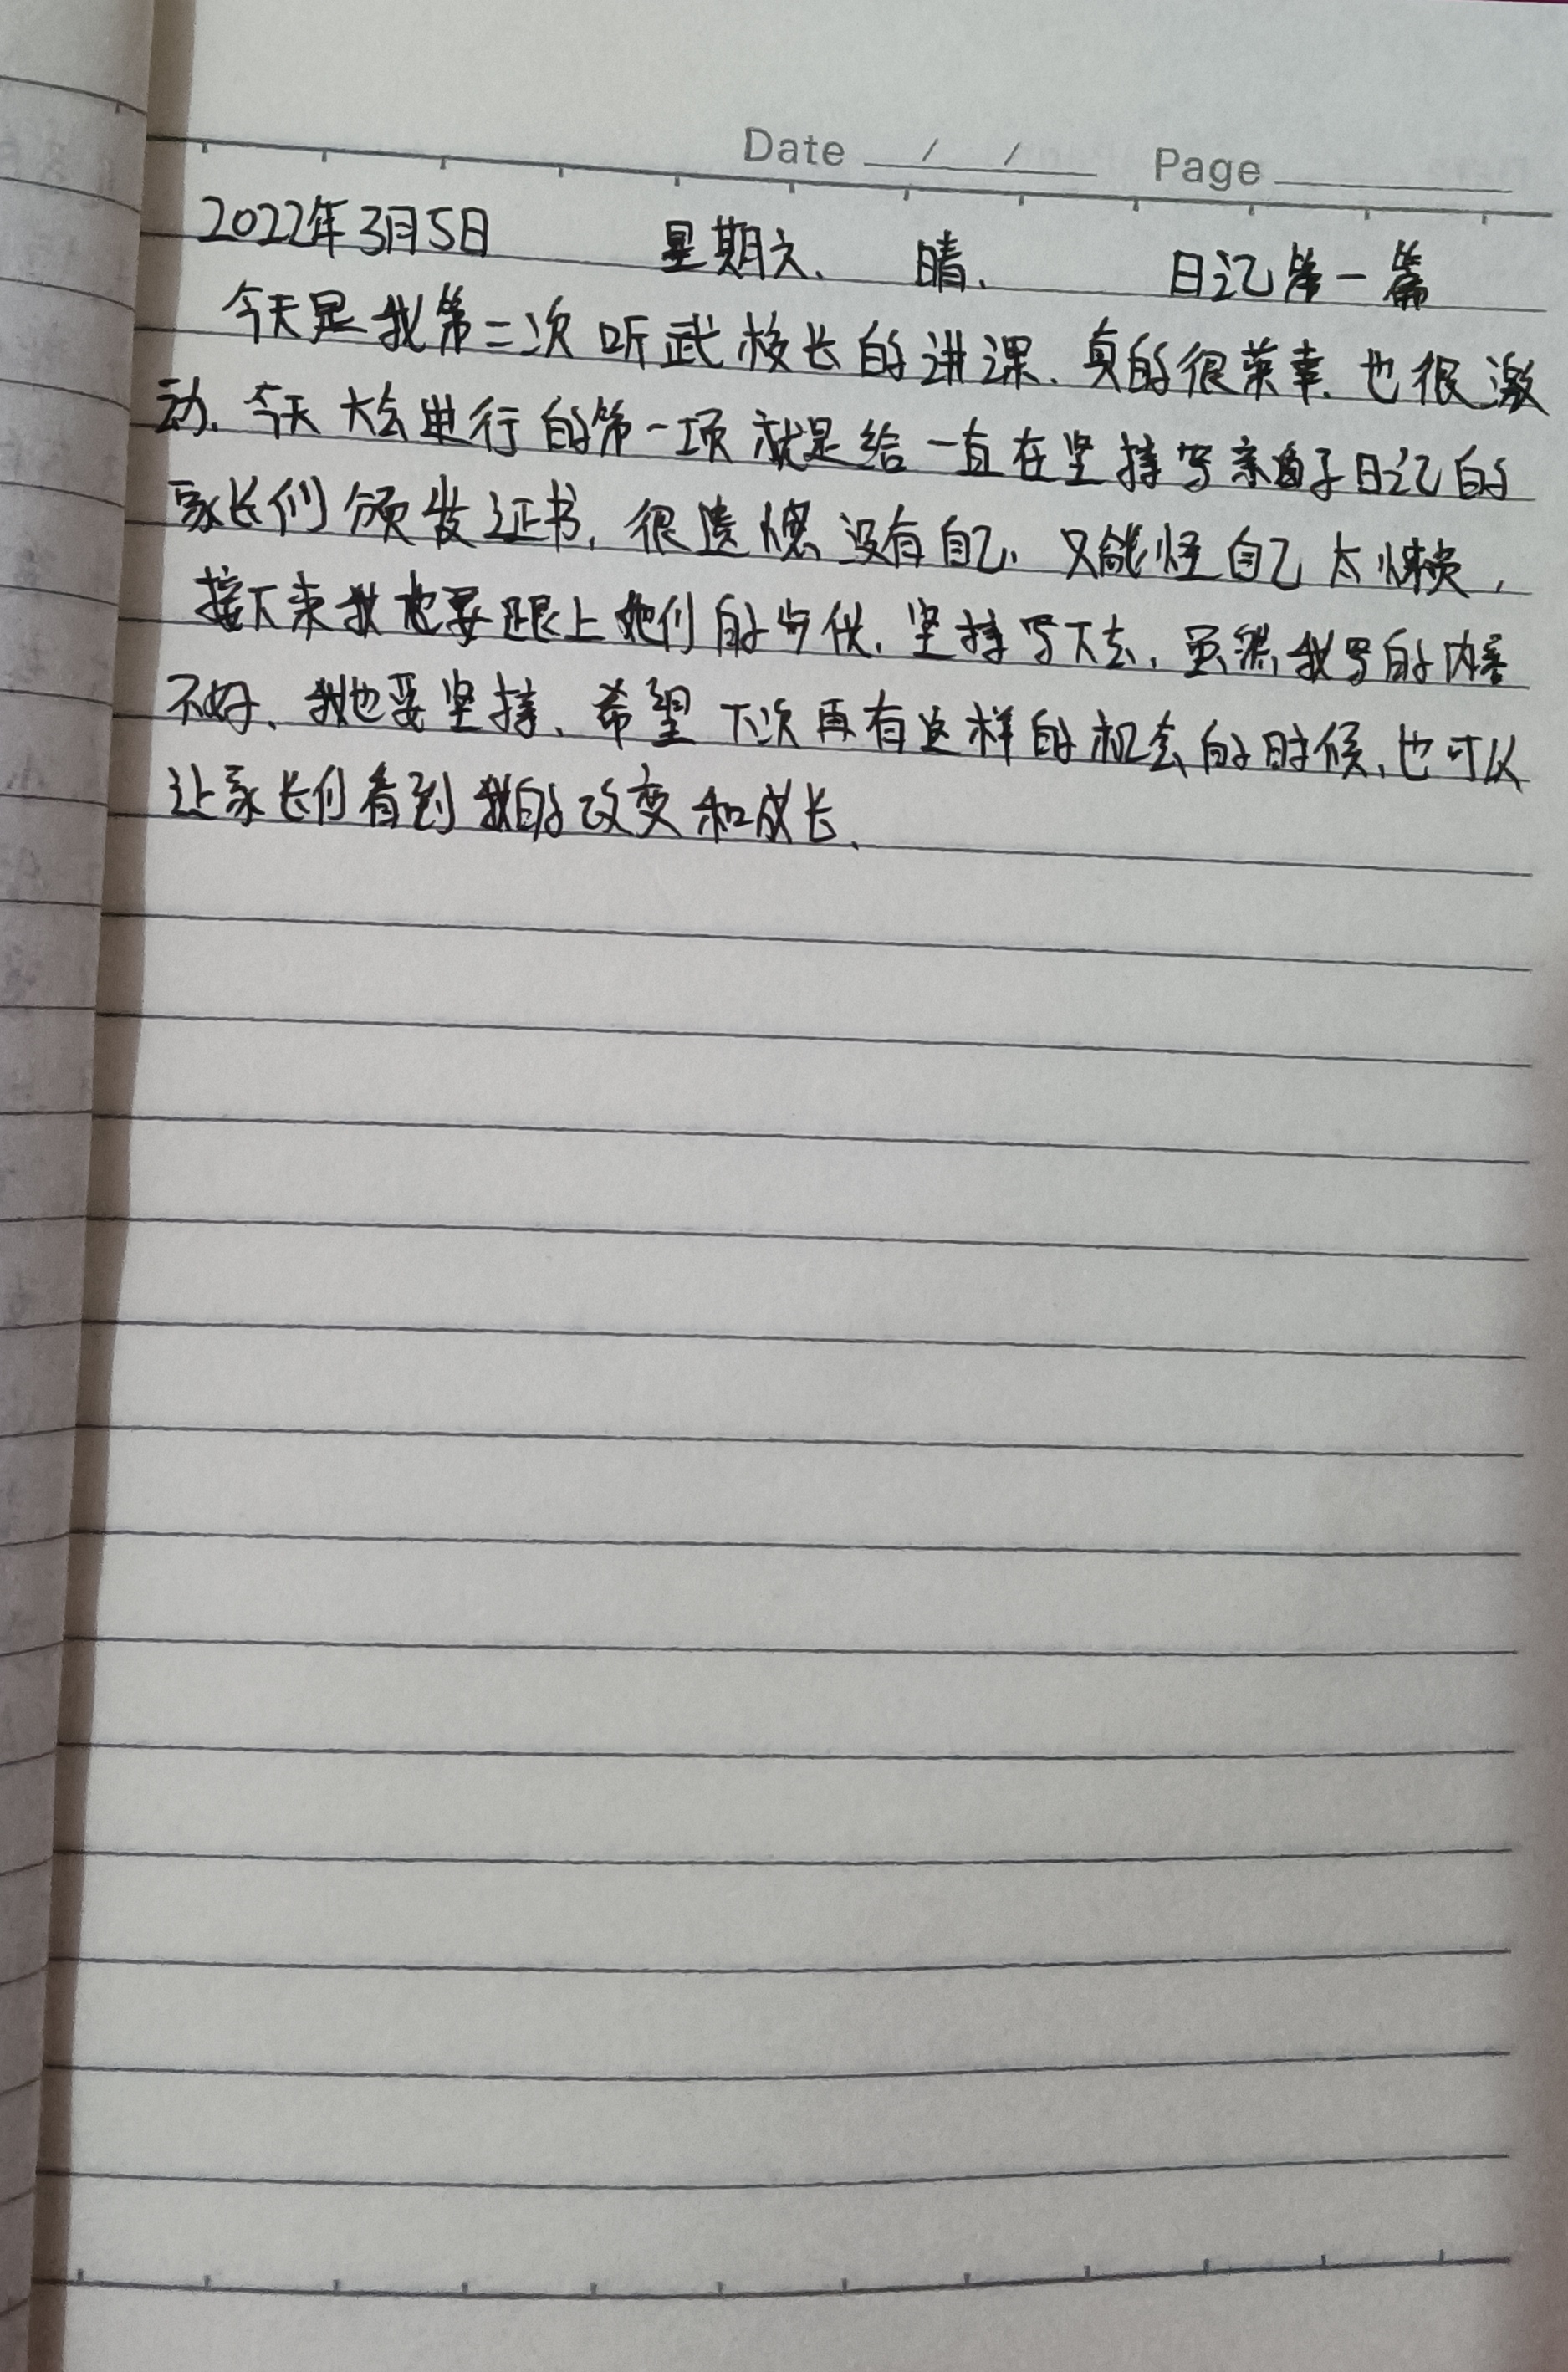 Date / / Page
2022年3月5日 星期六. 晴. 日记第一篇
今天是我第二次听武校长的讲课.真的很荣幸.也很激
动.今天大会进行的第一项就是给一直在坚持写亲子日记的
家长们颁发证书,很遗憾没有自己.只能怪自己太懒,
接下来我也要跟上她们的步伐.坚持写下去,虽然我写的内容
不好、我也要坚持、希望下次再有这样的机会的时候,也可以
让家长们看到我的改变和成长.